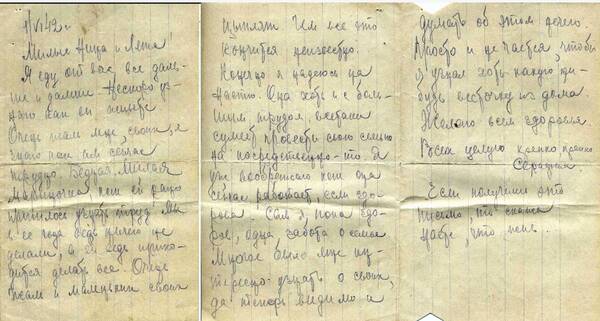 1/VI 42 г.
Милые Нина и Лята!
Я еду от вас все даль-
ше и дальше.
как вы живете
Очень жаль мне, своих, я
знаю как им сейчас
трудно. Бедная, милая
Мариночка, как ей рано
пришлось узнать труд! Мы
в ее года ведь ничего не
делали, а ей ведь прихо-
дится делать все. Очень
жаль и маленьких своих
цыплят. Чем все это
кончится неизвестно.
Конечно я надеюсь на
Настю. Она хоть и с боль-
шим трудом, все-таки
сумеет провести свою семью
на посредственно-то. Я
уже воображаю как она
сейчас работает, если здо-
рова. Сам я, пока здо-
ров, одна забота о семье
Многое было мне ин-
тересно узнать о своих,
да теперь видимо и
думать об этом нечего.
Просто и не чается, чтобы
я узнал хоть какую ни-
будь весточку из дома
Желаю всем здоровья.
Всех целую крепко крепко
Серафим
Если получите это
письмо, то
Насте, что